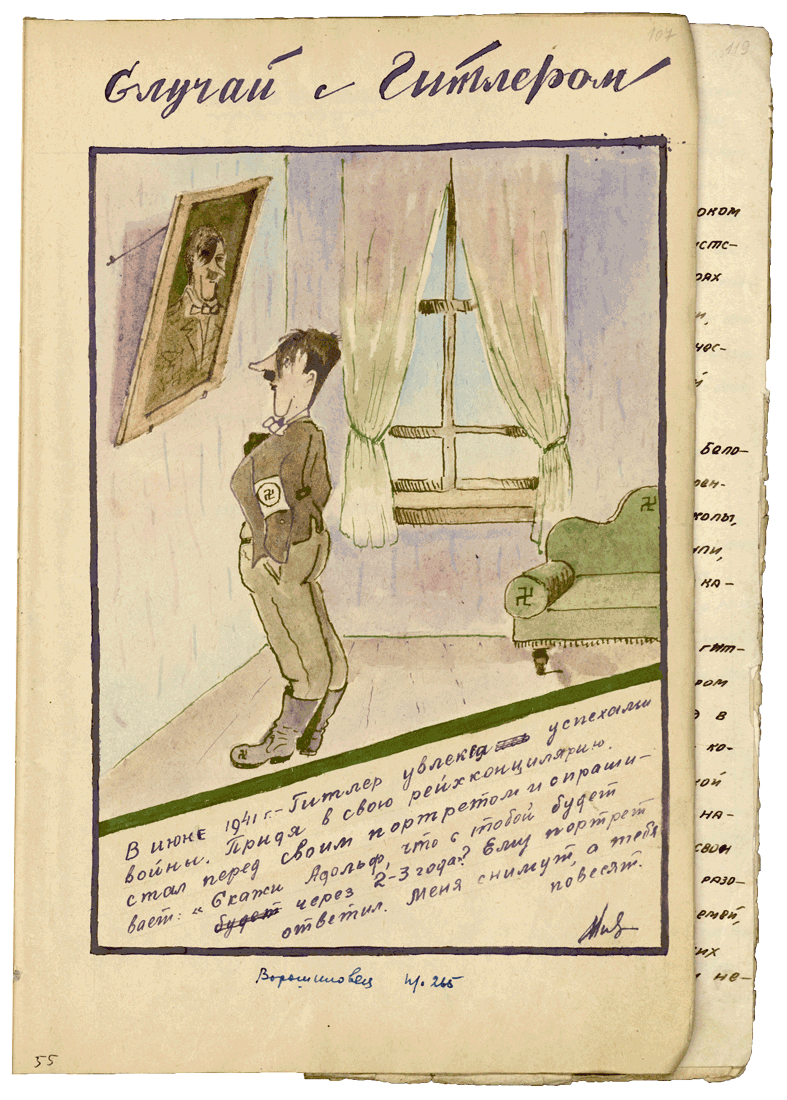 107
119
Случай с Гитлером
В июне 1941 г.- Гитлер увлекся успехами
войны. Придя в свою рейхконцилярию.
стал перед своим портретом и спраши-
вает: "Скажи Адольф, что с тобой будет
будет через 2-3 года? Ему портрет
ответил. Меня снимут, а тебя
повесят.
Ворошиловец № 265
55
оком
истс-
рях
и,
нос-
й
Бело-
рен-
колы,
или,
ка-
гит-
ром
в
ко-
ной
на-
свои
разо-
емей,
их
и не-